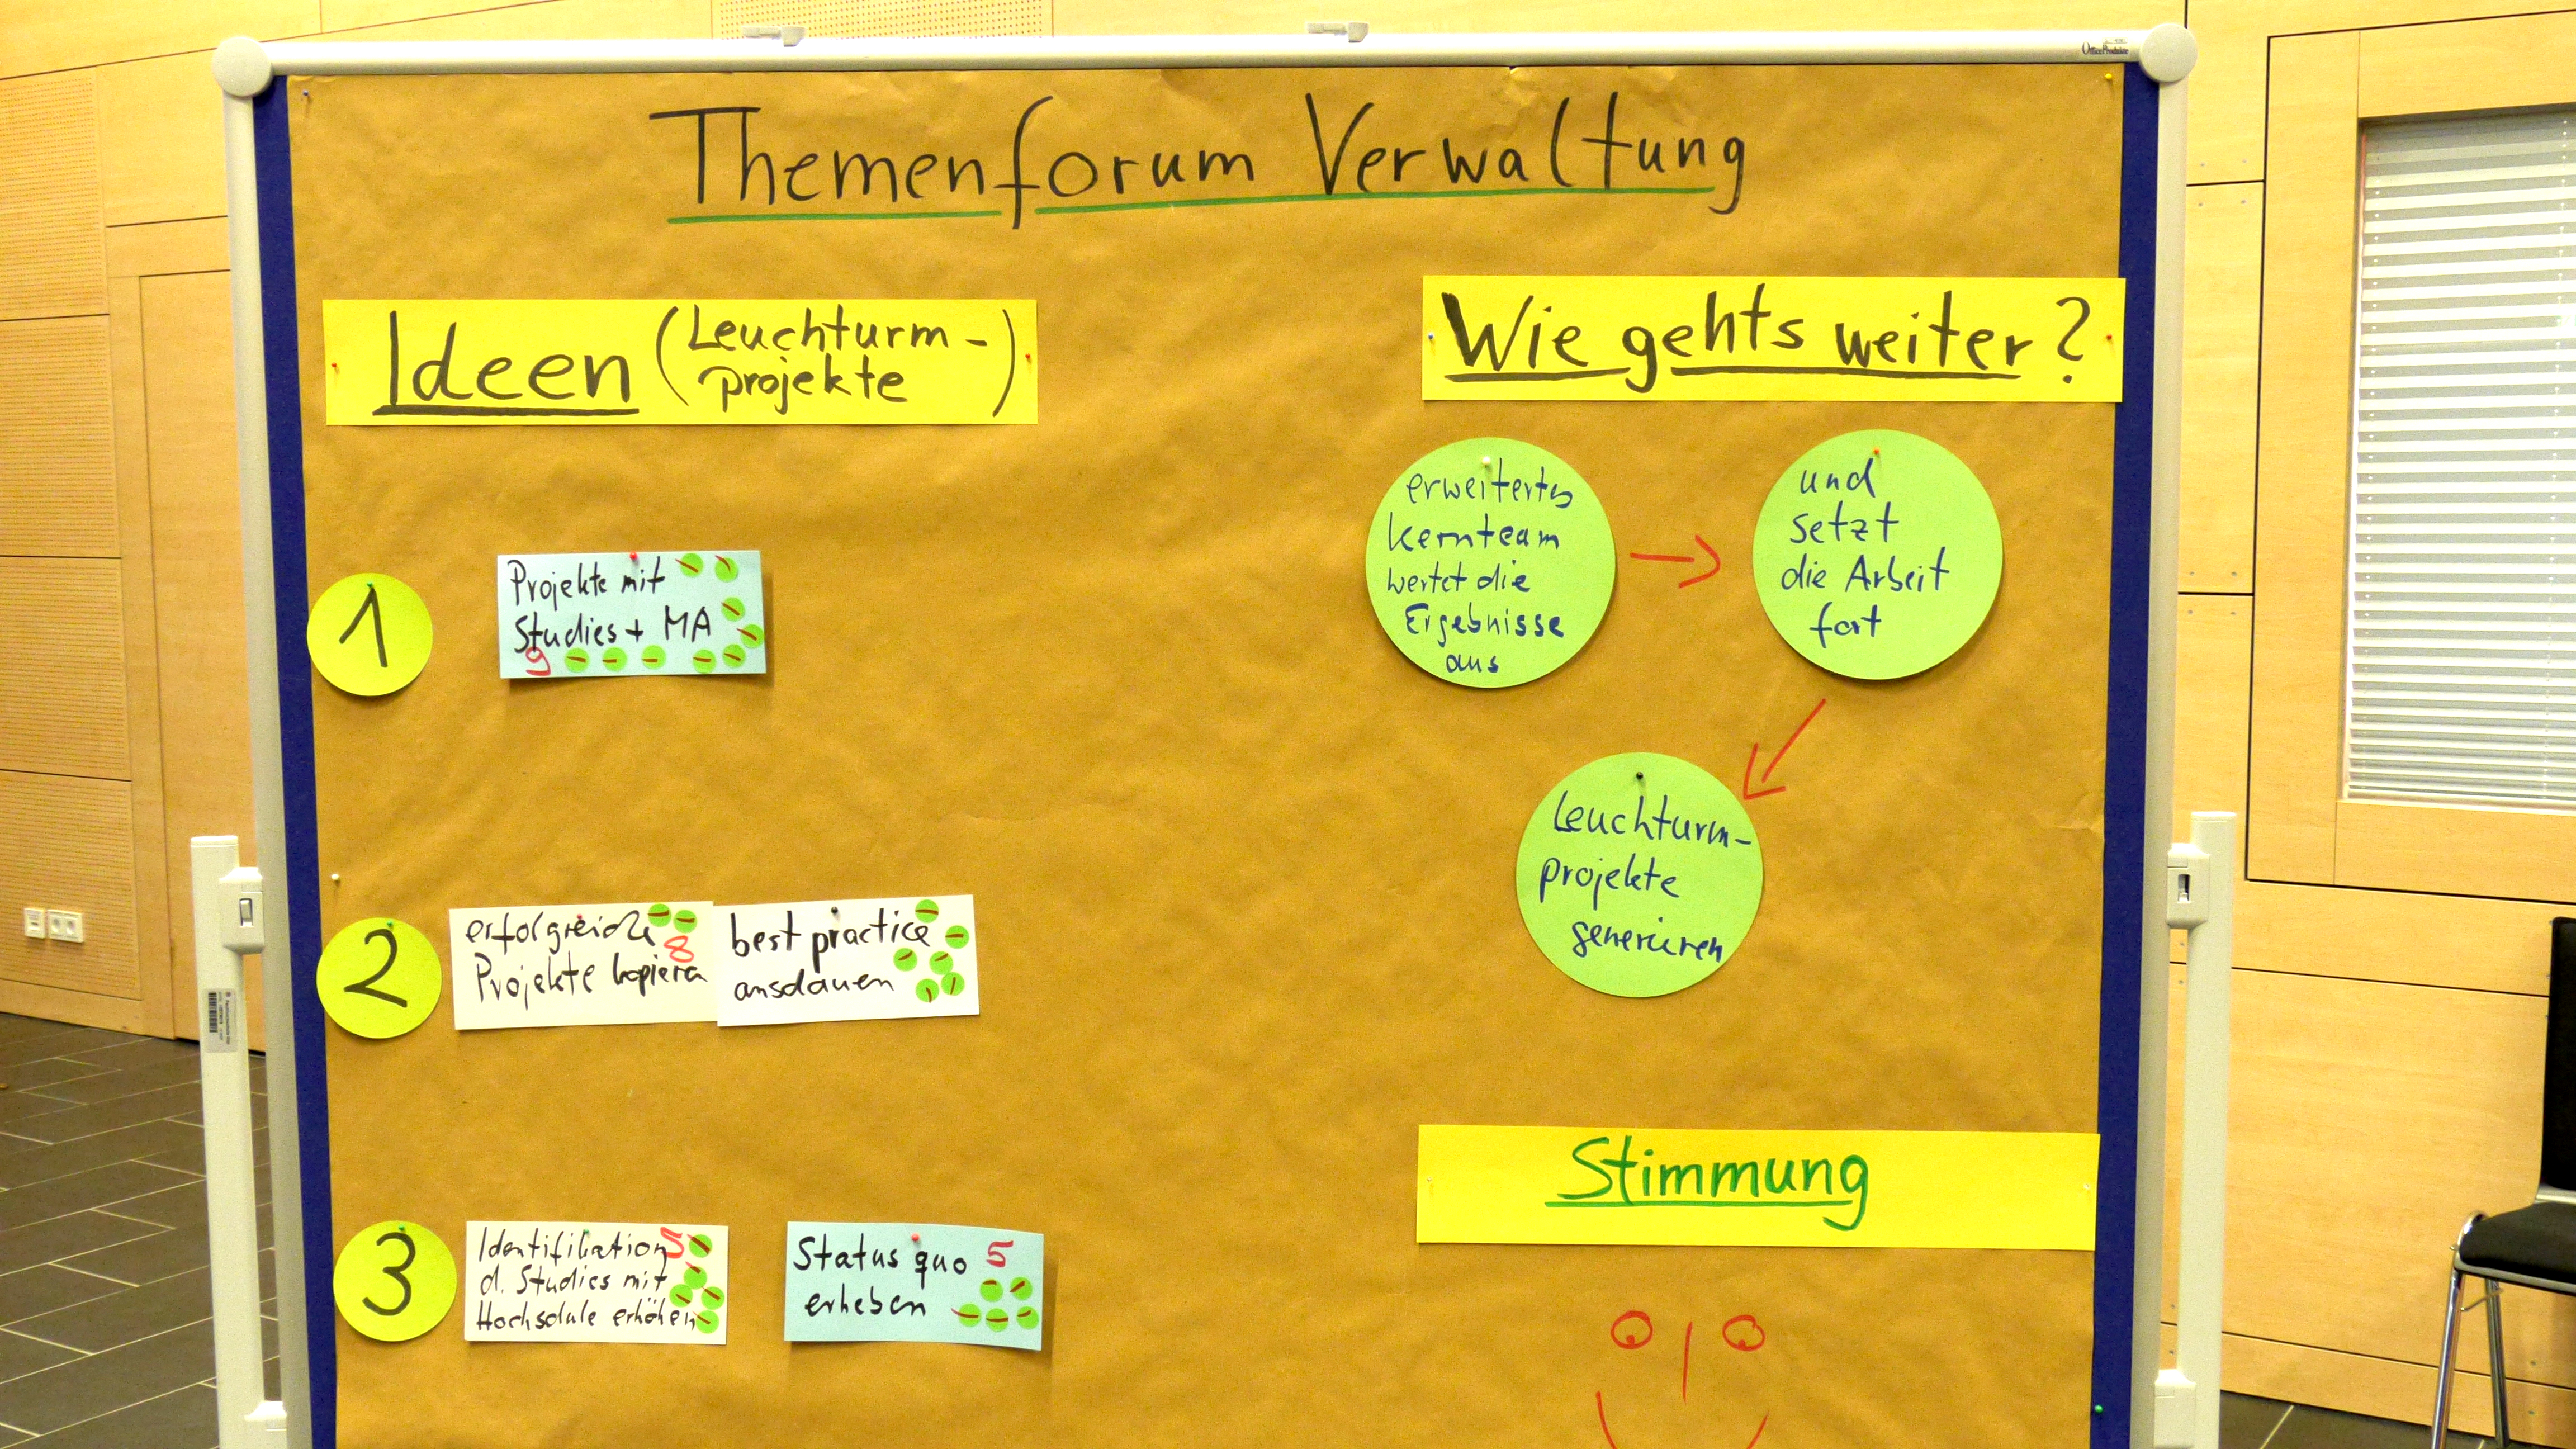 Themenforum Verwaltung
Ideen (Leuchturm-
projekte)
1
Projekte mit
Studies + MA
9
2
erfolgreiche
8
Projekte kopieren
best practice
anschauen
3
Identifikation 5
d. Studies mit
Hochschule erhöhen
Status quo 5
erheben
Wie gehts weiter?
erweitertes
Kernteam
wertet die
Ergebnisse
aus
und
setzt
die Arbeit
fort
Leuchturm-
projekte
generieren
Stimmung